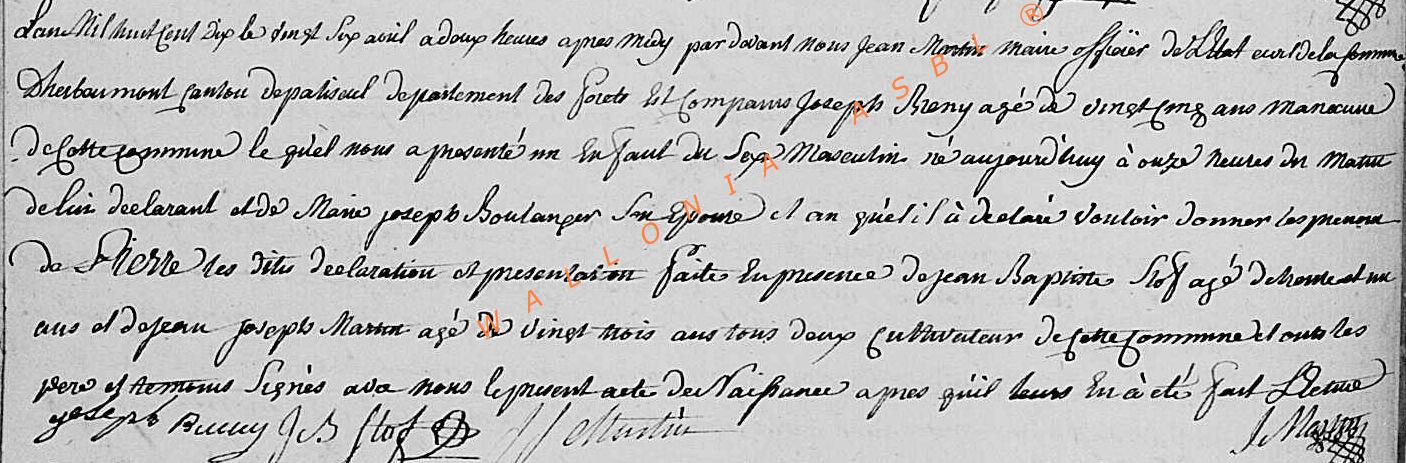 Lan Mil huit Cent Dix le vingt Six avril a deux heures apres midy par devant nous Jean Martin maire officier de L'Etat civil de la Commune
Dherbeumont Canton de paliseul departement des forets Est Comparus Joseph Remy agé de vingt Cinq ans manoeuvre
de Cette Commune le quel nous a presenté un Enfant du Sexe Masculin né aujourd'huy à onze heures du matin
de lui declarant et de Marie joseph Boulanger Son Epouse et au quel il à declaré vouloir donner les prenom
de Pierre les dites declaration et presentation faite En presence de jean Baptiste Stof agé de trente et un
ans et de jean joseph Martin agé de vingt trois ans tous deux Cultivateur de Cette Commune et ont les
pere et temoins Signés avec nous le present acte de Naissance apres qu'il leurs En à eté fait Lecture
joseph Remy J B Stof J J Martin J Martin
WALLONIA ASBL ®